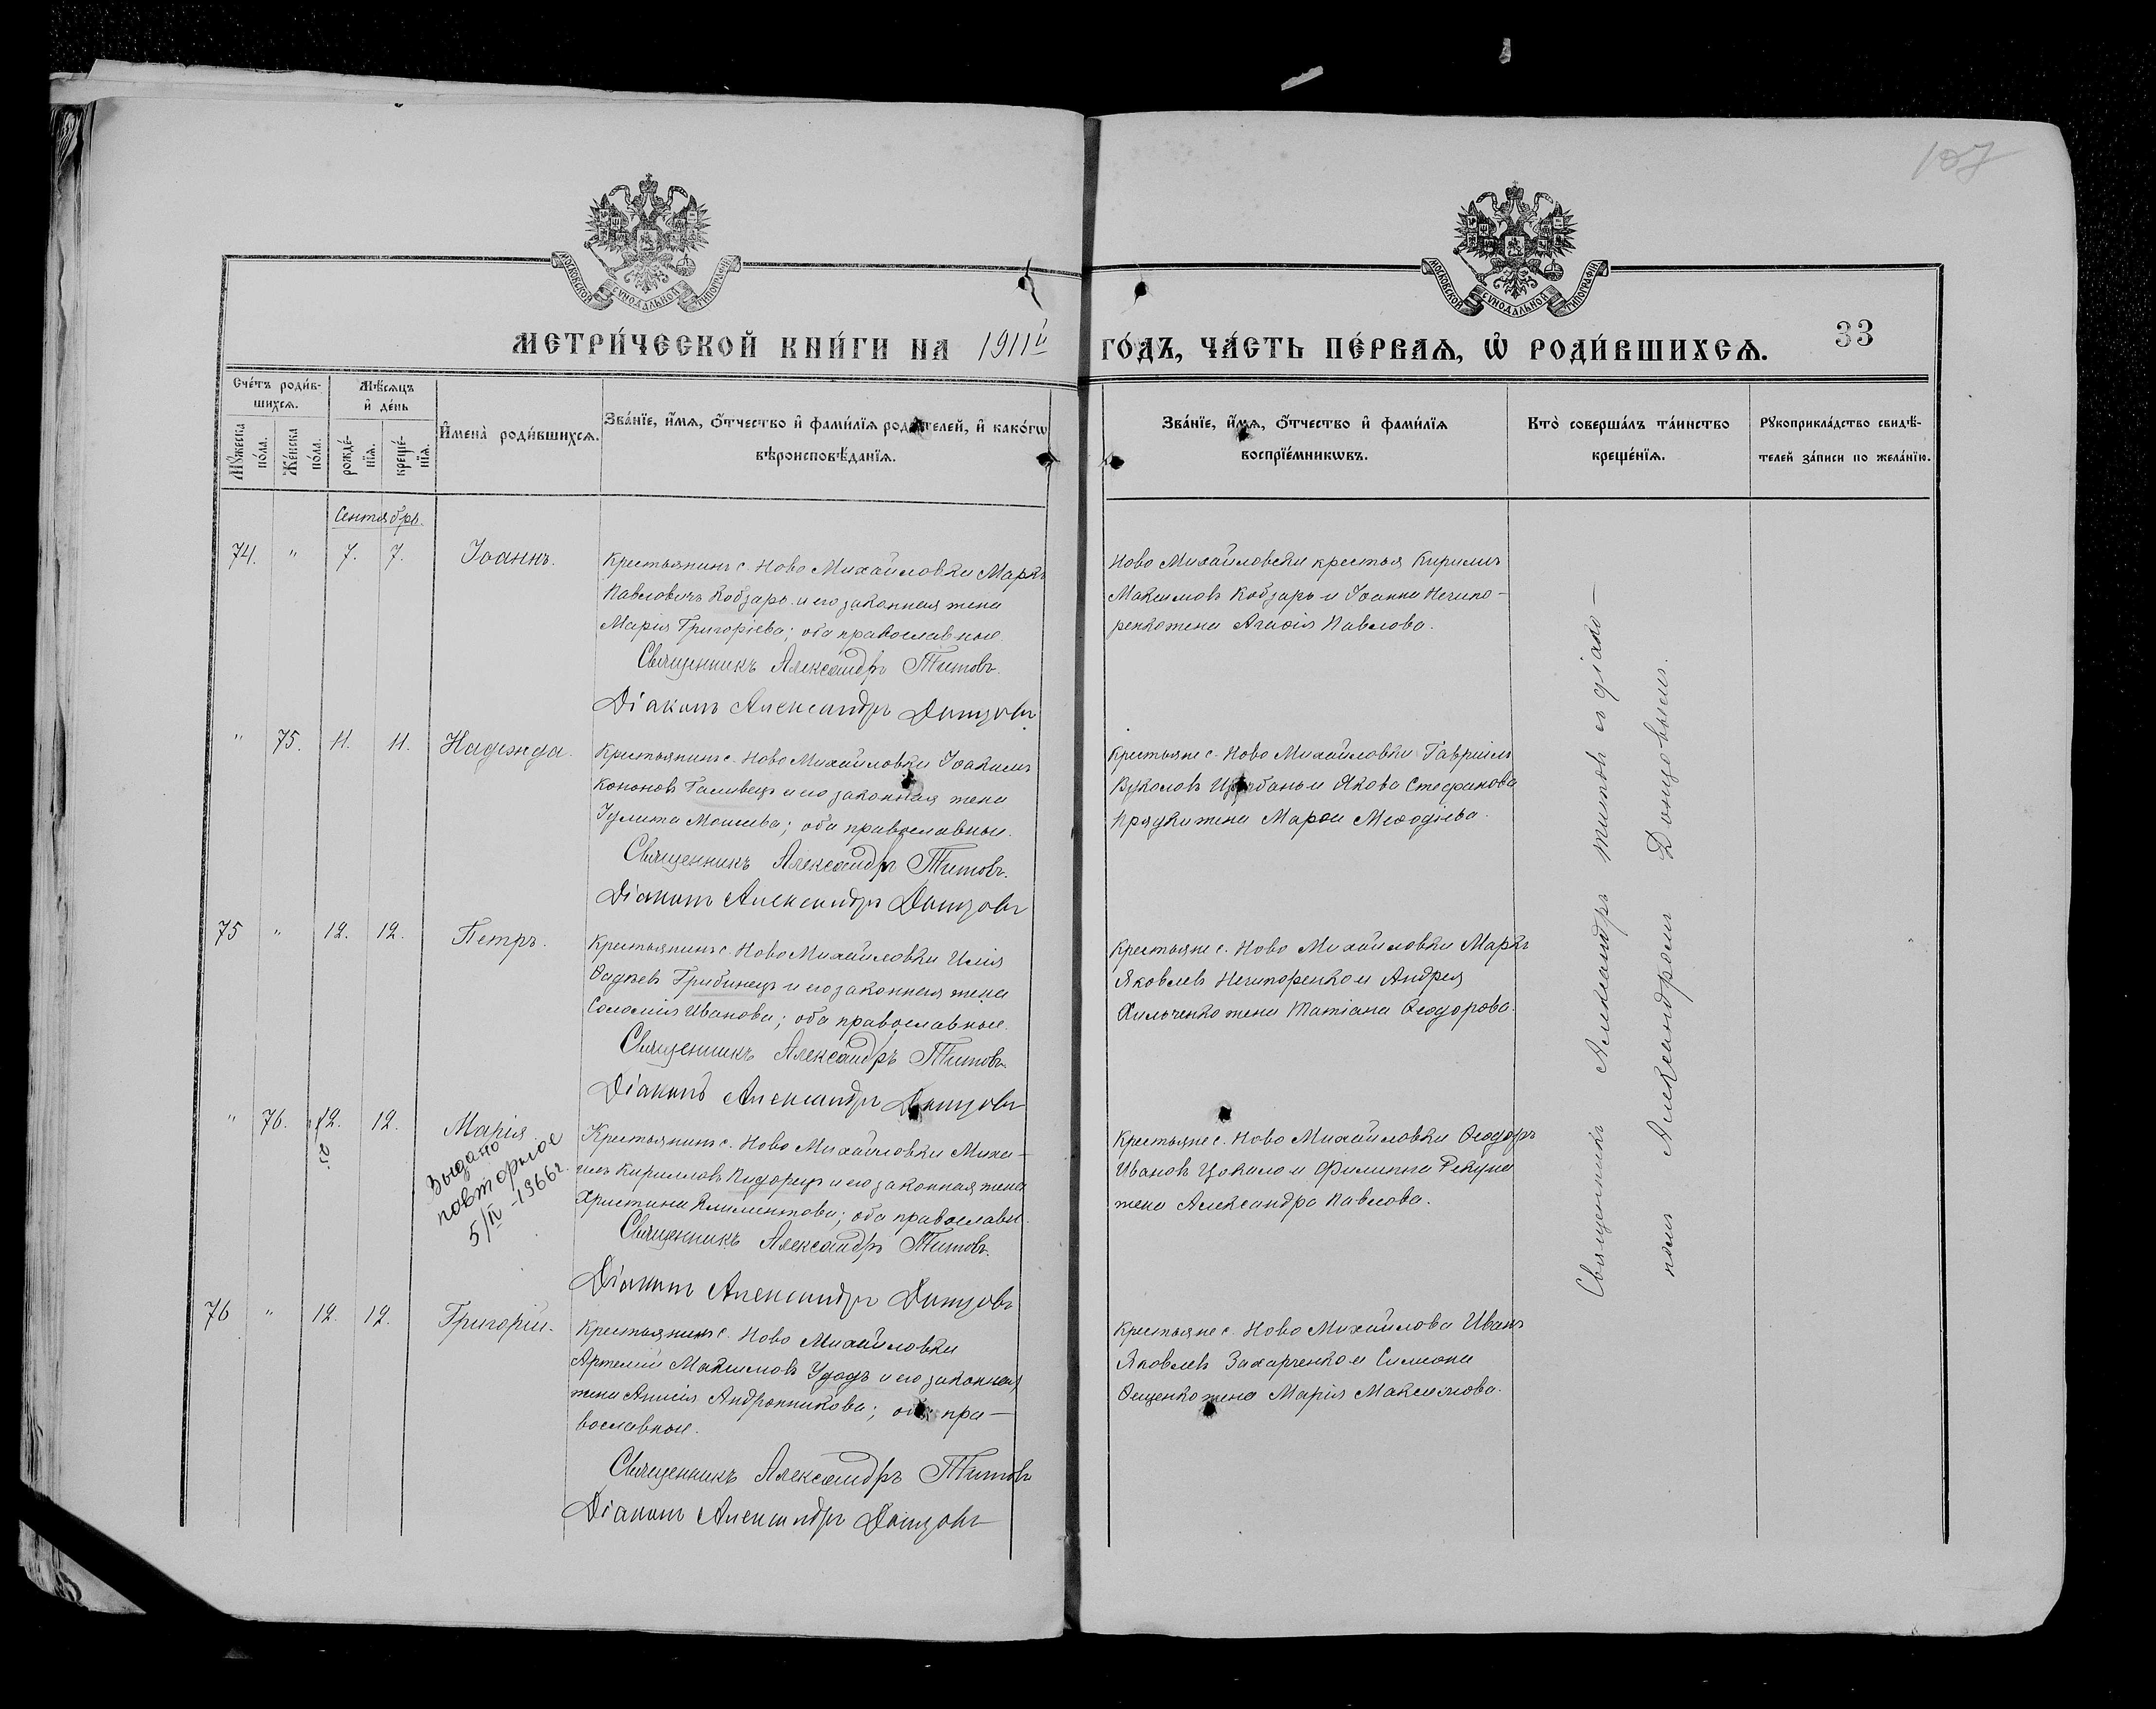 107
МОСКОВСКОЙ СѴНОДАЛЬНОЙ ТИПОГРАФІИ
МОСКОВСКОЙ СѴНОДАЛЬНОЙ ТИПОГРАФІИ
МЕТРИ́ЧЕСКОЙ КНИ́ГИ НА 1911й ГО́ДЪ, ЧА́СТЬ ПЕ́РВАѦ, Ѡ҆ РОДИ́ВШИХСѦ.
33
Сче́тъ роди́в-
шихсѧ.
Мѣ́сѧцъ
и҆ де́нь
Мꙋ́жеска по́ла.
Же́нска по́ла.
рожде́-
нїѧ.
креще́-
нїѧ.
И҆мена̀ роди́вшихсѧ.
Зва́нїе, и҆́мѧ, ѻ҆́тчество и҆ фами́лїѧ роди́телей, и҆ како́гѡ
вѣроисповѣ́данїѧ.
Зва́нїе, и҆́мѧ, ѻ҆́тчество и҆ фами́лїѧ
воспрїе́мникѡвъ.
Кто̀ соверша́лъ та́инство
креще́нїѧ.
Рꙋкоприкла́дство свидѣ́-
телей за́писи по жела́нїю.
Сентябрь.
74. " 7. 7. Іоаннъ.
Крестьянинъ с. Ново Михайловки Маркъ
Павловичъ Кобзарь и его законная жена
Марія Григоріева; оба православные
Священникъ Александръ Титовъ.
Діаконъ Александръ Донцовъ
Ново Михайловски крестья Кириллъ
Максимовъ Кобзарь и Іоанна Нечипо-
ренко жена Агафія Павлова.
" 75. 11. 11. Надежда.
Крестьянинъ с. Ново Михайловки Іоакимъ
Кононовъ Галивецъ и его законная жена
Іулита Моисеева; оба православные.
Священникъ Александръ Титовъ.
Діаконъ Александръ Донцовъ
Крестьяне с. Ново Михайловки Гавріилъ
Вуколовъ и Якова Стефанова
Прядки жена Марфа Меѳодіева.
75 " 12. 12. Петръ.
Крестьянинъ с. Ново Михайловки Илія
Ѳадѣевъ Грибинецъ и его законная жена
Соломія Иванова; оба православные.
Священникъ Александръ Титовъ.
Діаконъ Александръ Донцовъ
Крестьяне с. Ново Михайловки Маркъ
Яковлевъ Нечипоренко и Андрея
Хильченко жена Татіана Ѳеодорова.
" 76. 12. 12. Марія.
Выдано
повторное
5/IV-1966г.
Крестьянинъ с. Ново Михайловки Миха-
илъ Кирилловъ Пидорецъ и его законная жена
Христина Климентова; оба православн.
Священникъ Александръ Титовъ.
Діаконъ Александръ Донцовъ
Крестьяне с. Ново Михайловки Ѳеодоръ
Ивановъ Цокало и Филиппа Рекуна
жена Александра Павлова.
76 " 12. 12. Григорій.
Крестьянинъ с. Ново Михайловки
Артемій Максимовъ Удодъ и его законная
жена Анисія Андронникова; оба пра-
вославные.
Священникъ Александръ Титовъ
Діаконъ Александръ Донцовъ
Крестьяне с. Ново Михайлова Иванъ
Яковлевъ Захарченко и Симеона
Ѳещенко жена Марія Максимова.
Священникъ Александръ Титовъ съ діако-
номъ Александромъ Донцовымъ.